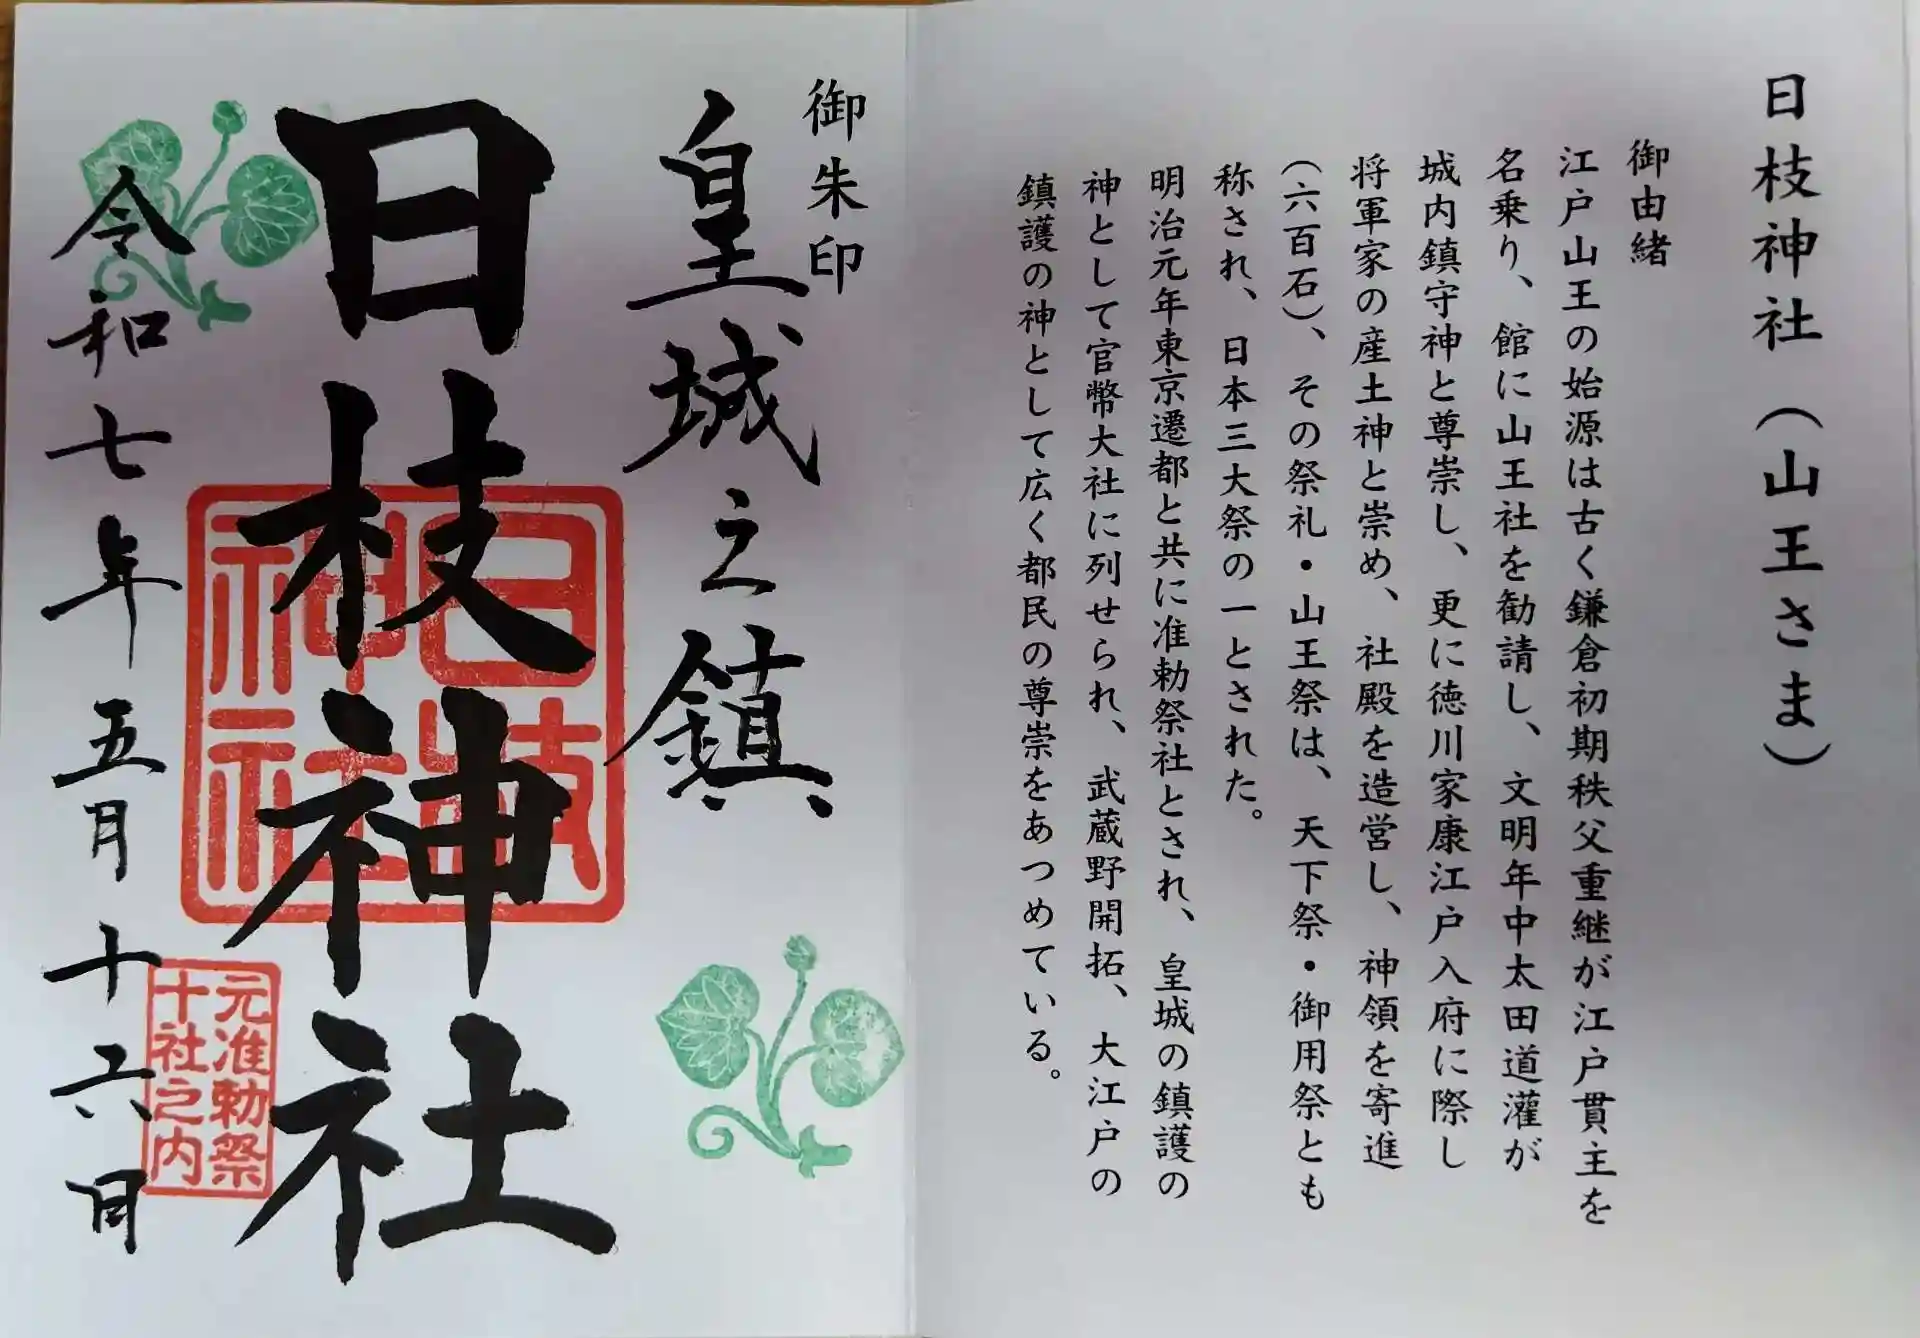 日枝神社（山王さま）
御由緒
江戸山王の始源は古く鎌倉初期秩父重継が江戸貫主を
名乗り、館に山王社を勧請し、文明年中太田道灌が
城内鎮守神と尊崇し、更に徳川家康江戸入府に際し
将軍家の産土神と崇め、社殿を造営し、神領を寄進
（六百石）、その祭礼・山王祭は、天下祭・御用祭とも
称され、日本三大祭の一とされた。
明治元年東京遷都と共に准勅祭社とされ、皇城の鎮護の
神として官幣大社に列せられ、武蔵野開拓、大江戸の
鎮護の神として広く都民の尊崇をあつめている。
御朱印
皇城之鎮
日枝神社
日枝
神社
元准勅祭
十社之内
令和七年五月十六日